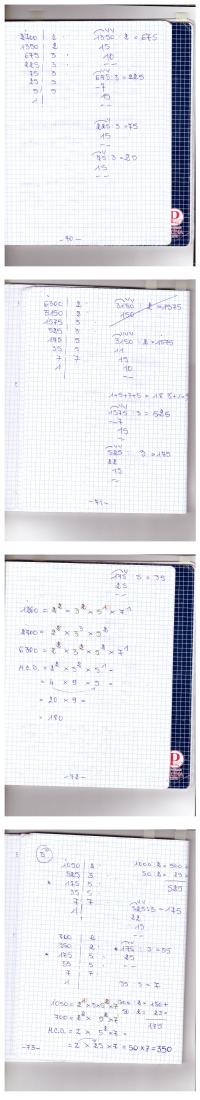 2700 | 2
1350 | 2
675 | 3
225 | 3
75 | 3
25 | 5
5 | 5
1 |
1350 : 2 = 675
15
10
--
675 : 3 = 225
-7
15
--
225 : 3 = 75
15
--
75 : 3 = 25
15
--
-70-
6300 | 2
3150 | 2
1575 | 3
525 | 3
175 | 5
35 | 5
7 | 7
1 |
3150 : 2 = 1575
150
3150 : 2 = 1575
11
15
10
--
1+5+7+5 = 18
1575 : 3 = 525
-7
15
525 : 3 = 175
22
15
-71-
175 : 5 = 35
25
--
1260 = 2² × 3² × 5¹ × 7¹
2700 = 2² × 3³ × 5²
6300 = 2² × 3² × 5² × 7¹
M.C.D. = 2² × 3² × 5¹ =
= 4 × 9 × 5 =
= 20 × 9 =
= 180
-72-
1050 | 2
525 | 3
175 | 5
35 | 5
7 | 7
1 |
1000 : 2 = 500 +
50 : 2 = 25 =
525
525 : 3 = 175
22
15
--
700 | 2
350 | 2
175 | 5
35 | 5
7 | 7
1
175 : 5 = 35
25
--
35 : 5 = 7
700 = 2² × 5² × 7
175
M.C.D. = 2 × 5² × 7 =
= 2 × 25 × 7 = 50 × 7 = 350
-73-